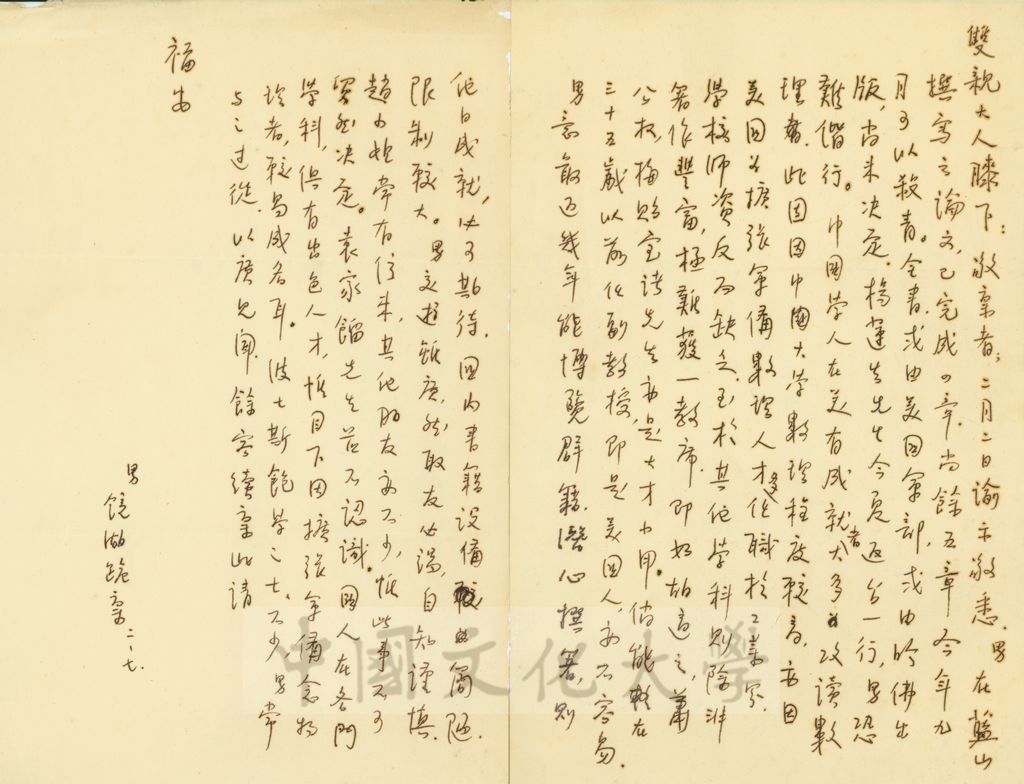 雙親大人膝下：敬稟者；二月二日諭示敬悉。男在藍山
撰寫之論文，已完成四章，尚餘五章，今年九
月可以殺青。全書或由美國軍部，或由哈佛出
版，尚未決定。楊蓮生先生今夏返台一行，男恐
難偕行。中國學人在美有成就者大多攻讀數
理者。此固因中國大學數理程度較高，亦因
美國為擴張軍備數理人才多任職於工業界，
學校師資反而缺乏。至於其他學科則除非
著作豐富，極難獲一教席。即如胡適之、蕭
公权、梅貽宝諸先生亦是大才小用。倘能在
三十五歲以前任副教授，即是美國人，亦不容易。
男意敢迈幾年能博覽群籍，潛心撰著，則
他日成就，必可期待。國內書籍設備簡陋，
限制較大。男交遊雖廣，然取友必端，自知謹慎。
趙小姐常有信來，其他朋友亦不少，惟此事不可
貿然決定。袁家騮先生茲不認識。國人在各門
學科，俱有出色人才，惟目下因擴張軍備念物
理者，較易成名耳。波士斯飽學之士，不少男常
与之过從，以廣見聞。餘容續稟此請
福安
男 鏡湖跪稟 二、七、
中國文化大學